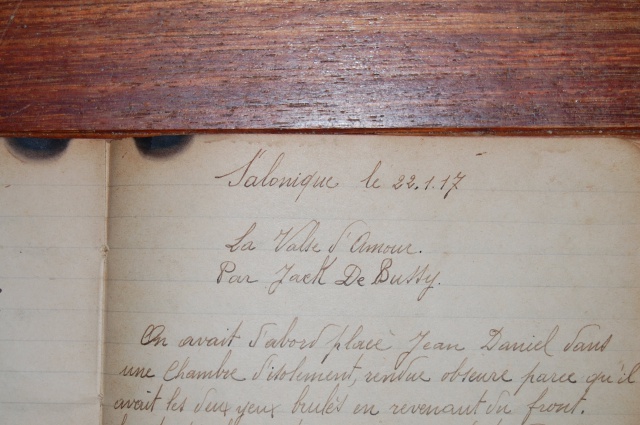 Salonique le 22.1.17
La Valse d'Amour.
Par Jack De Bussy.
On avait d'abord placé Jean Daniel dans
une chambre d'isolement, rendue obscure parce qu'il
avait les deux yeux brulés en revenant du front.